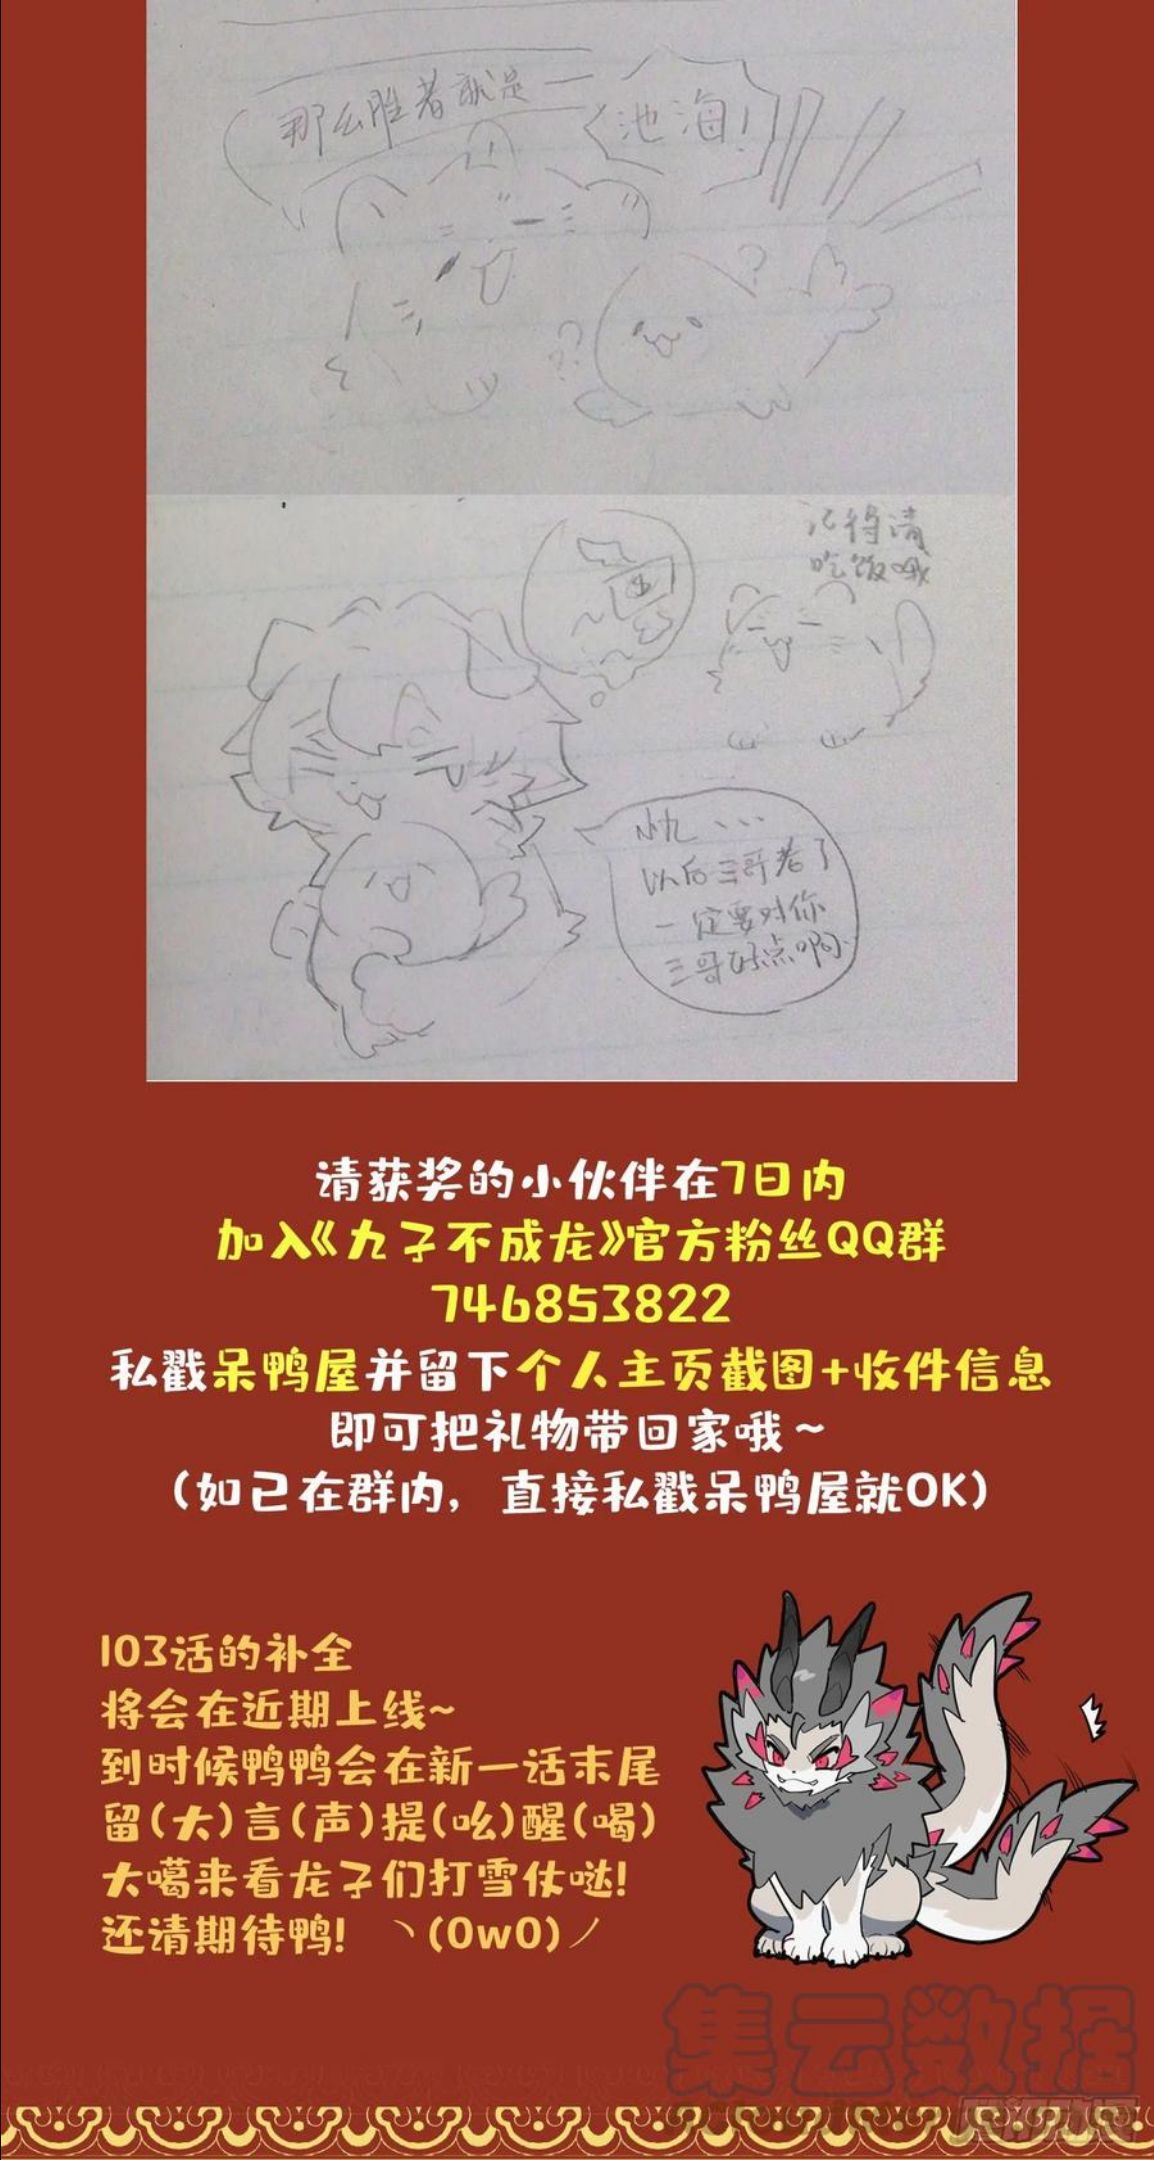 那么胜者就是一
池海！
？
??
记得请
吃饭哦
小九、、、
以后三哥老了
一定要对你
三哥好点啊
请获奖的小伙伴在7日内
加入《九子不成龙》官方粉丝QQ群
746853822
私戳呆鸭屋并留下个人主页截图+收件信息
即可把礼物带回家哦~
（如已在群内，直接私戳呆鸭屋就OK）
103话的补全
将会在近期上线~
到时候鸭鸭会在新一话末尾
留(大)言(声)提(吆)醒(喝)
大噶来看龙子们打雪仗哒!
还请期待鸭! ヽ(0w0)ノ
集云数据